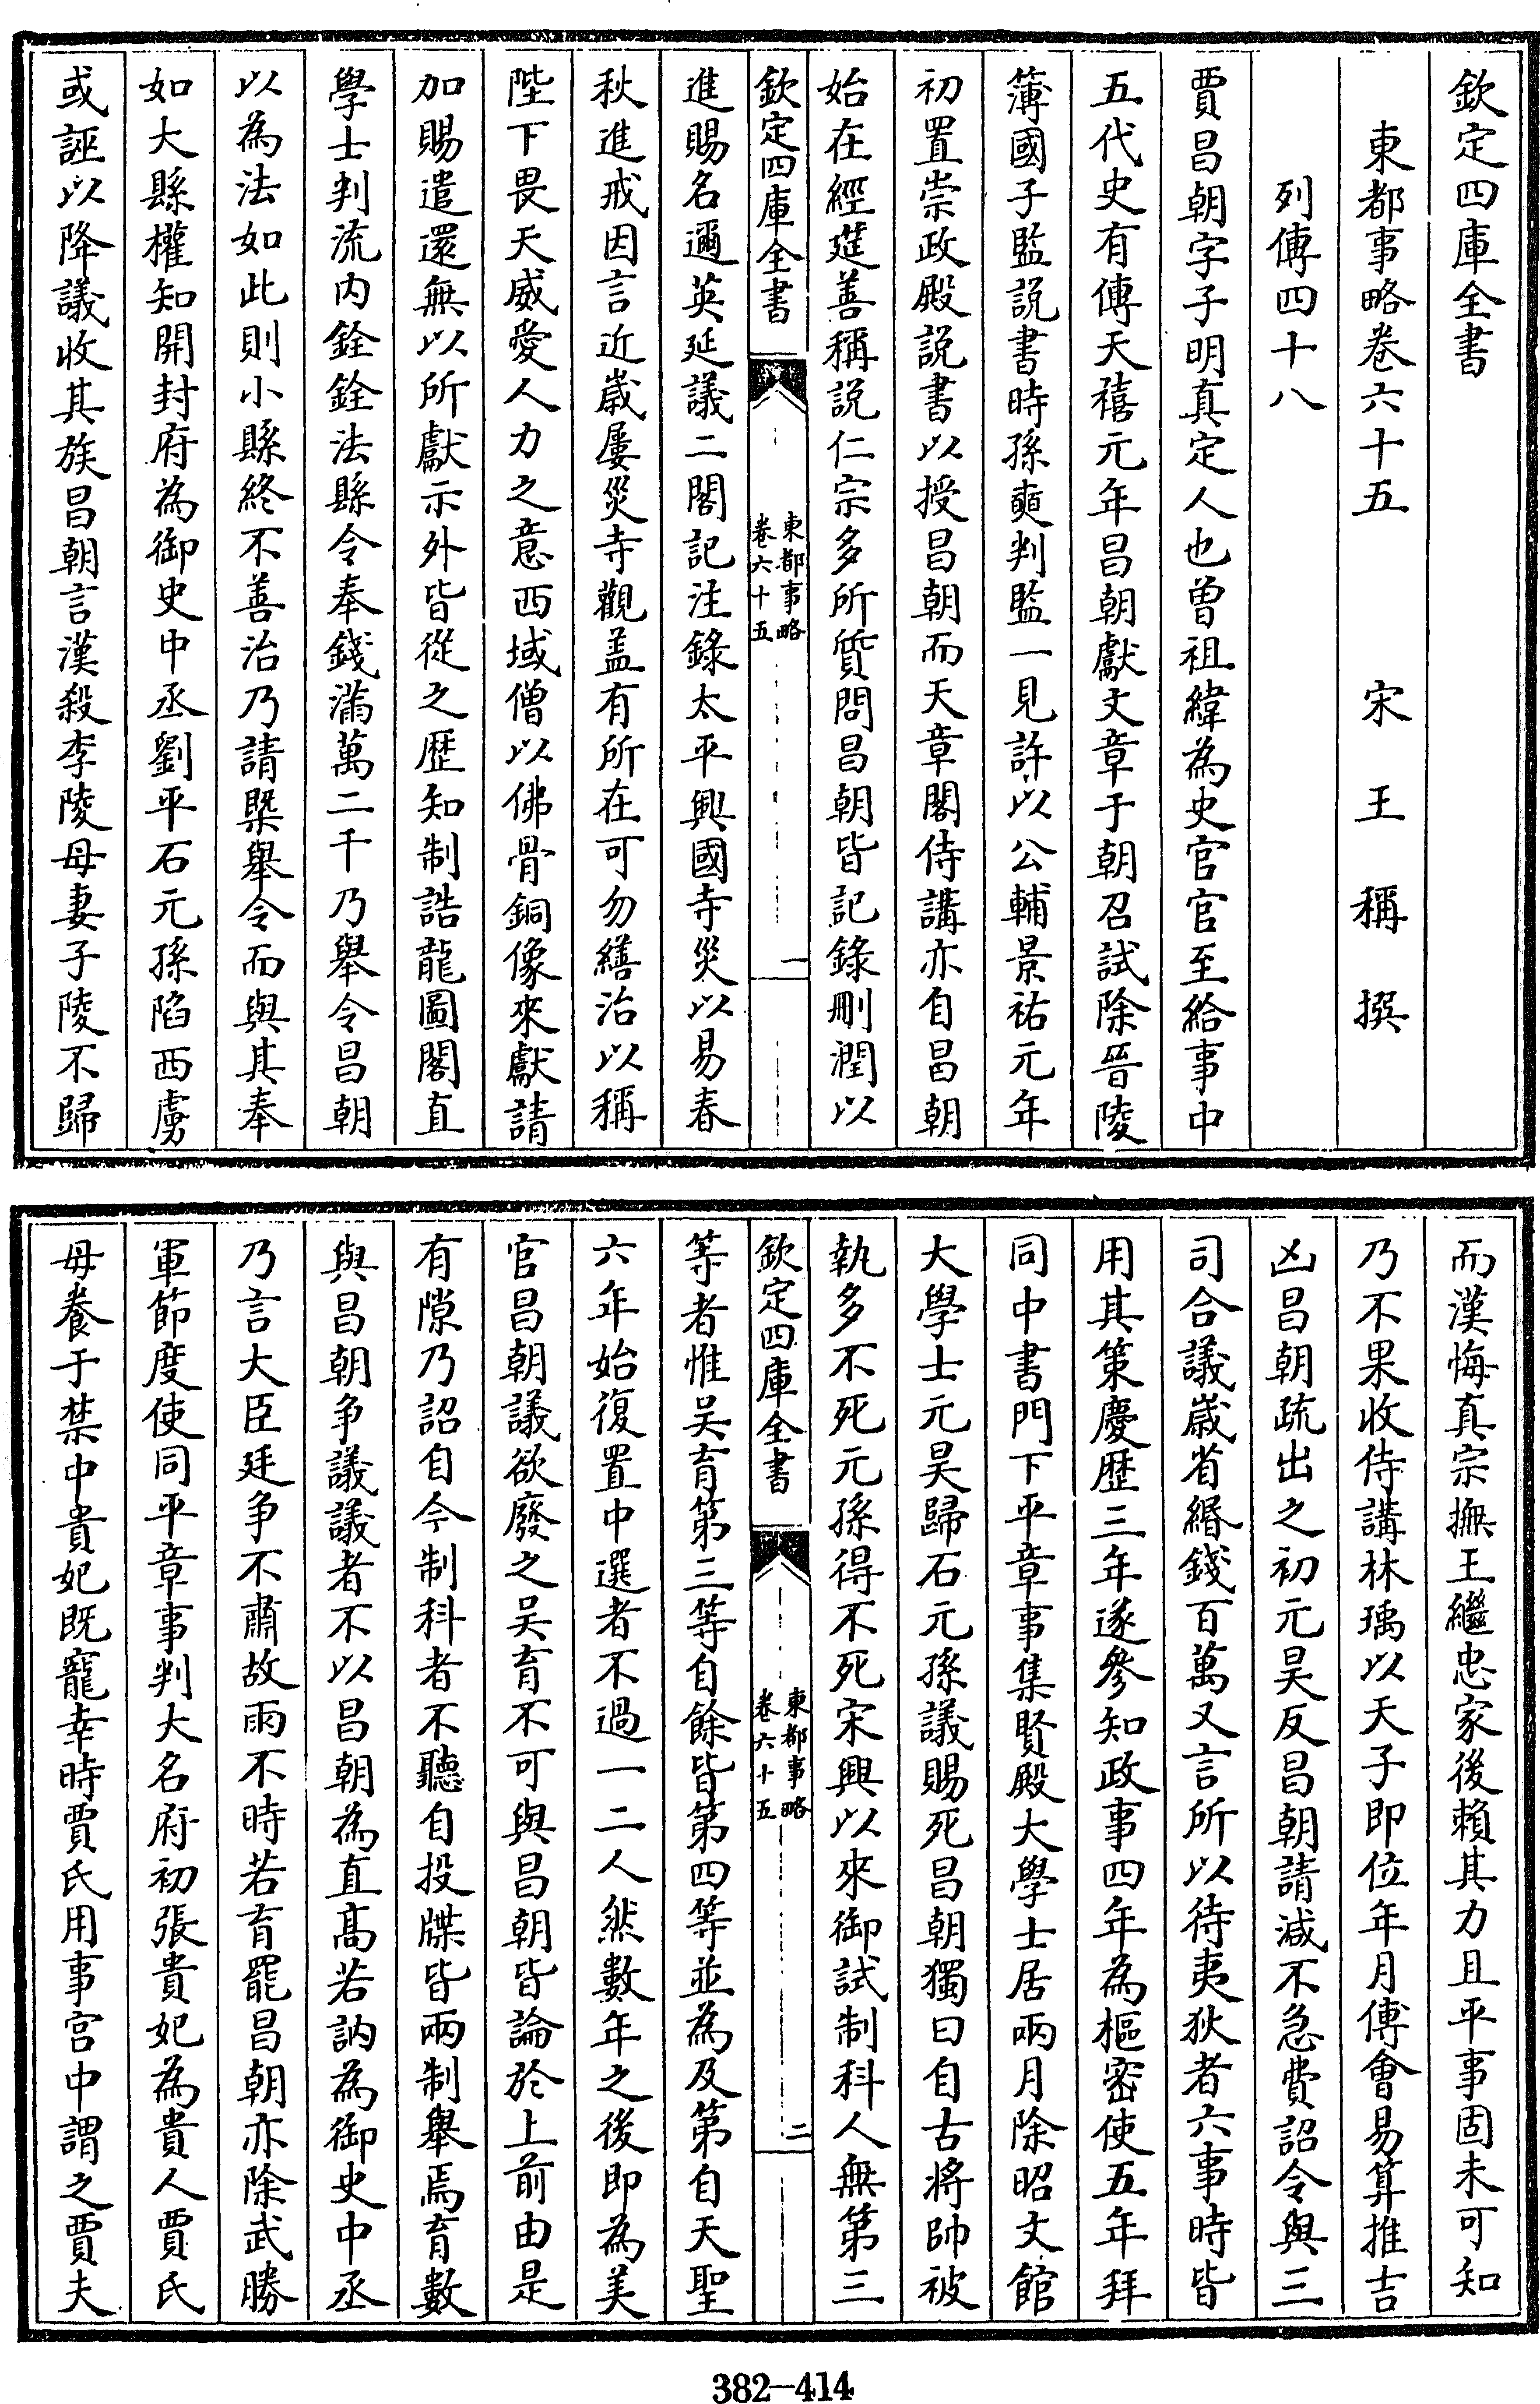 欽定四庫全書
東都事略卷六十五　宋　王　稱　撰
列傳四十八
賈昌朝字子明真定人也曾祖緯為史官官至給事中
五代史有傳天禧元年昌朝獻文章于朝召試除晉陵
簿國子監説書時孫奭判監一見許以公輔景祐元年
初置崇政殿説書以授昌朝而天章閣侍講亦自昌朝
始在經筵善稱説仁宗多所質問昌朝皆記錄刪潤以
欽定四庫全書
東都事略
卷六十五
一
進賜名邇英延議二閣記注錄太平興國寺災以易春
秋進戒因言近歲屢災寺觀盖有所在可勿繕治以稱
陛下畏天威愛人力之意西域僧以佛骨銅像來獻請
加賜遣還無以所獻示外皆從之歴知制誥龍圖閣直
學士判流内銓銓法縣令奉錢滿萬二千乃舉令昌朝
以為法如此則小縣終不善治乃請槩舉令而與其奉
如大縣權知開封府為御史中丞劉平石元孫陷西虜
或誣以降議收其族昌朝言漢殺李陵母妻子陵不歸
而漢悔真宗撫王繼忠家後賴其力且平事固未可知
乃不果收侍講林瑀以天子即位年月傅會易算推吉
凶昌朝疏出之初元昊反昌朝請減不急費詔令與三
司合議歲省緡錢百萬又言所以待夷狄者六事時皆
用其策慶歴三年遂參知政事四年為樞密使五年拜
同中書門下平章事集賢殿大學士居兩月除昭文館
大學士元昊歸石元孫議賜死昌朝獨曰自古將帥被
執多不死元孫得不死宋興以來御試制科人無第三
欽定四庫全書
東都事略
卷六十五
二
等者惟吴育第三等自餘皆第四等並為及第自天聖
六年始復置中選者不過一二人然數年之後即為美
官昌朝議欲廢之吴育不可與昌朝皆論於上前由是
有隙乃詔自今制科者不聽自投牒皆兩制舉焉育數
與昌朝争議議者不以昌朝為直髙若訥為御史中丞
乃言大臣廷争不肅故雨不時若育罷昌朝亦除武勝
軍節度使同平章事判大名府初張貴妃為貴人賈氏
母養于禁中貴妃既寵幸時賈氏用事宮中謂之賈夫
382-414